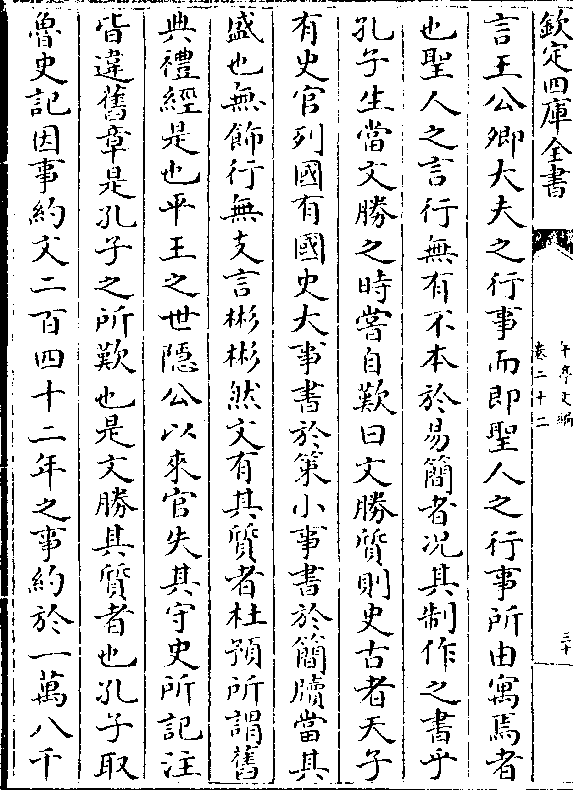 欽定四庫全書
午亭文編
卷二十二
三十
言王公卿大夫之行事而即聖人之行事所由寓焉者
也聖人之言行無有不本於易簡者况其制作之書乎
孔子生當文勝之時嘗自歎曰文勝質則史古者天子
有史官列國有國史大事書於策小事書於簡牘當其
盛也無飾行無支言彬彬然文有其質者杜預所謂舊
典禮經是也平王之世隠公以來官失其守史所記注
皆違舊章是孔子之所歎也是文勝其質者也孔子取
魯史記因事約文二百四十二年之事約於一萬八千